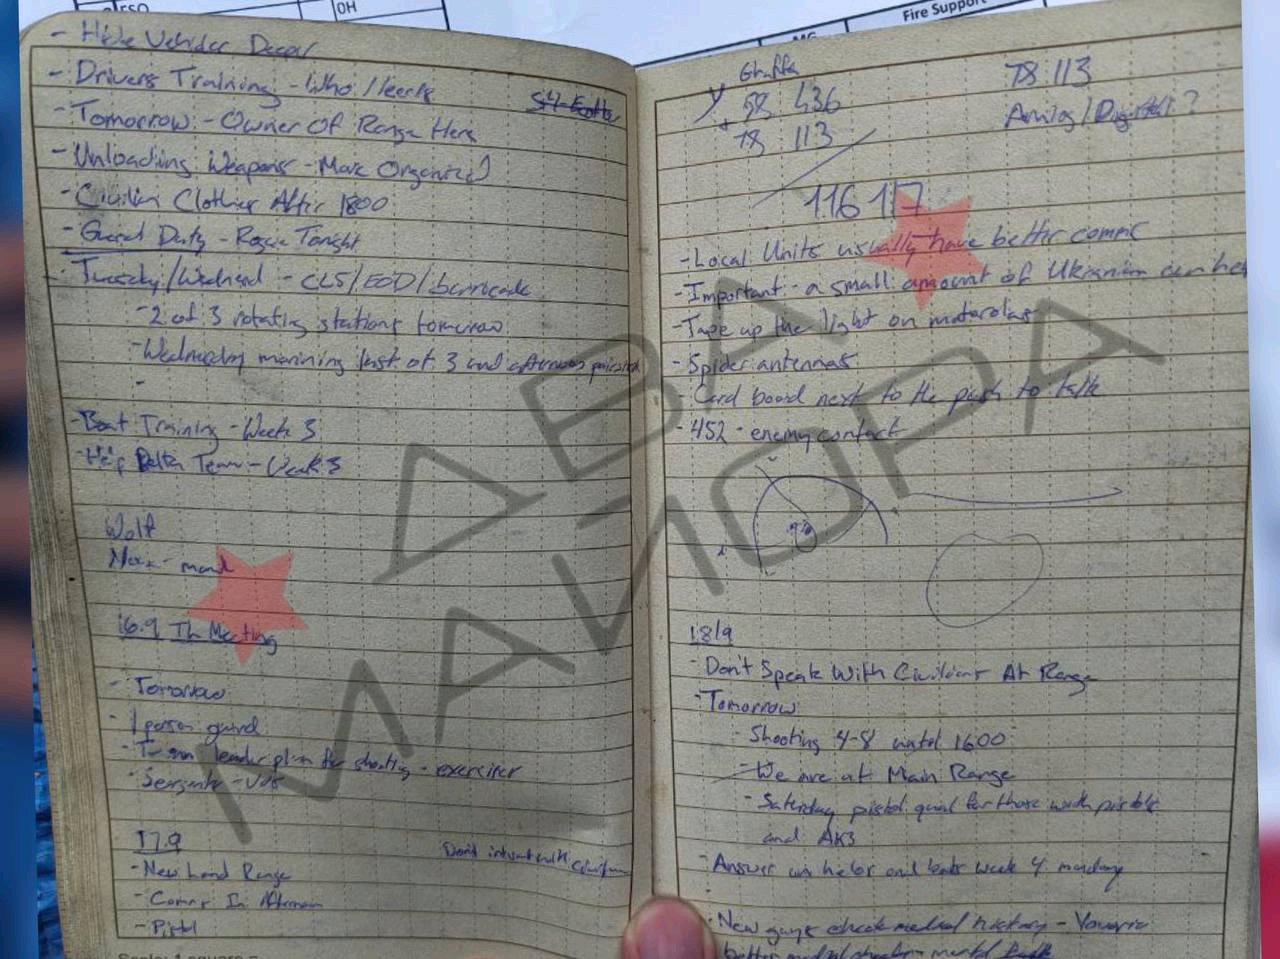 OH
Fire Support
- Hide Vehicles Decor
- Drivers Training - Who / leerk
- Tomorrow - Owner Of Range Here
- Unloading Weapons - More Organized
- Civilian Clothes After 1800
- Guard Duty - Rogue Tonight
- Tuesday / - CLS / EOD / barricade
- 2 of 3 rotating stations tomorrow
- Wednesday morning last of 3 and afternoon
-
- Boat Training - Week 3
- Delta Team - Week 3
Wolf
16.9 TL Meeting
- Tomorrow
- 1 person guard
- Team leader plan for shooting - exercises
17.9
Don't interact with
- New Land Range
- Comms In Afternoon
- Pistol
58 436
78 113
78 113
Analog / Digital ?
116 117
- Local Units usually have better comms
- Important - a small amount of Ukranian can
- Tape up the light on motorolas
- Spider antennas
- Card board next to the push to talk
- 452 - enemy contact
18/9
- Don't Speak With Civilians At Range
- Tomorrow
- Shooting 4-8 until 1600
- We are at Main Range
- Saturday pistol qual for those with pistols
and AKs
- Answer on helos and boats week 4 monday
- New guys check medical history -
better medical
АВА
МАЙОРА